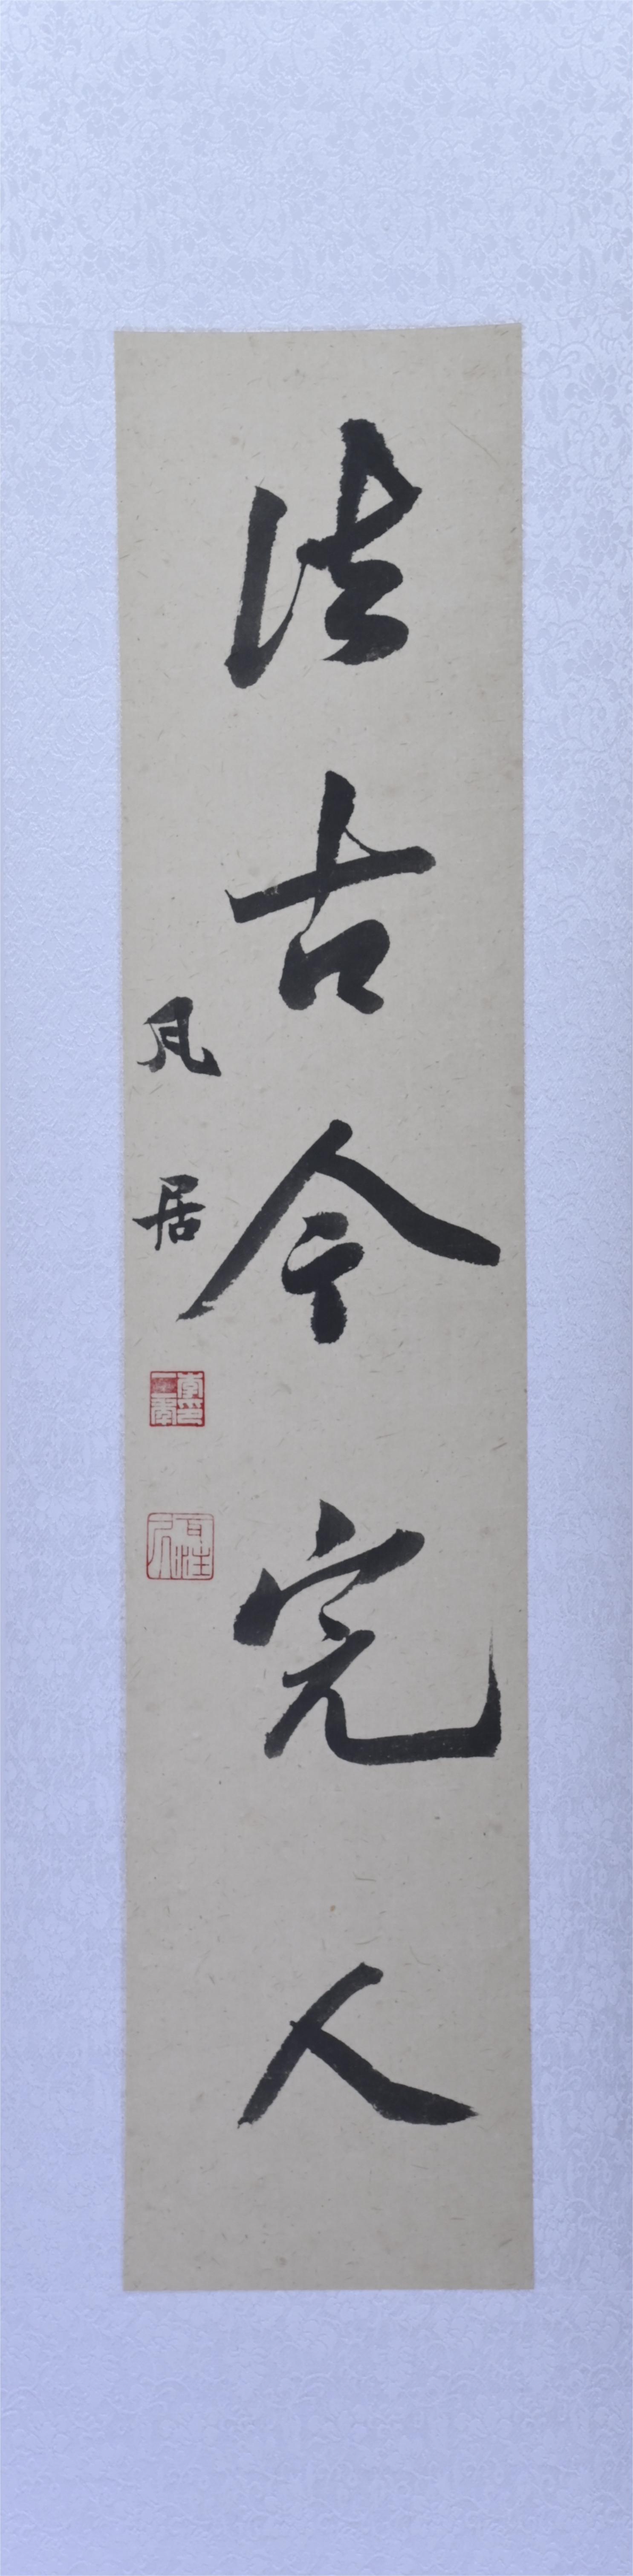 法古今完人
凡居